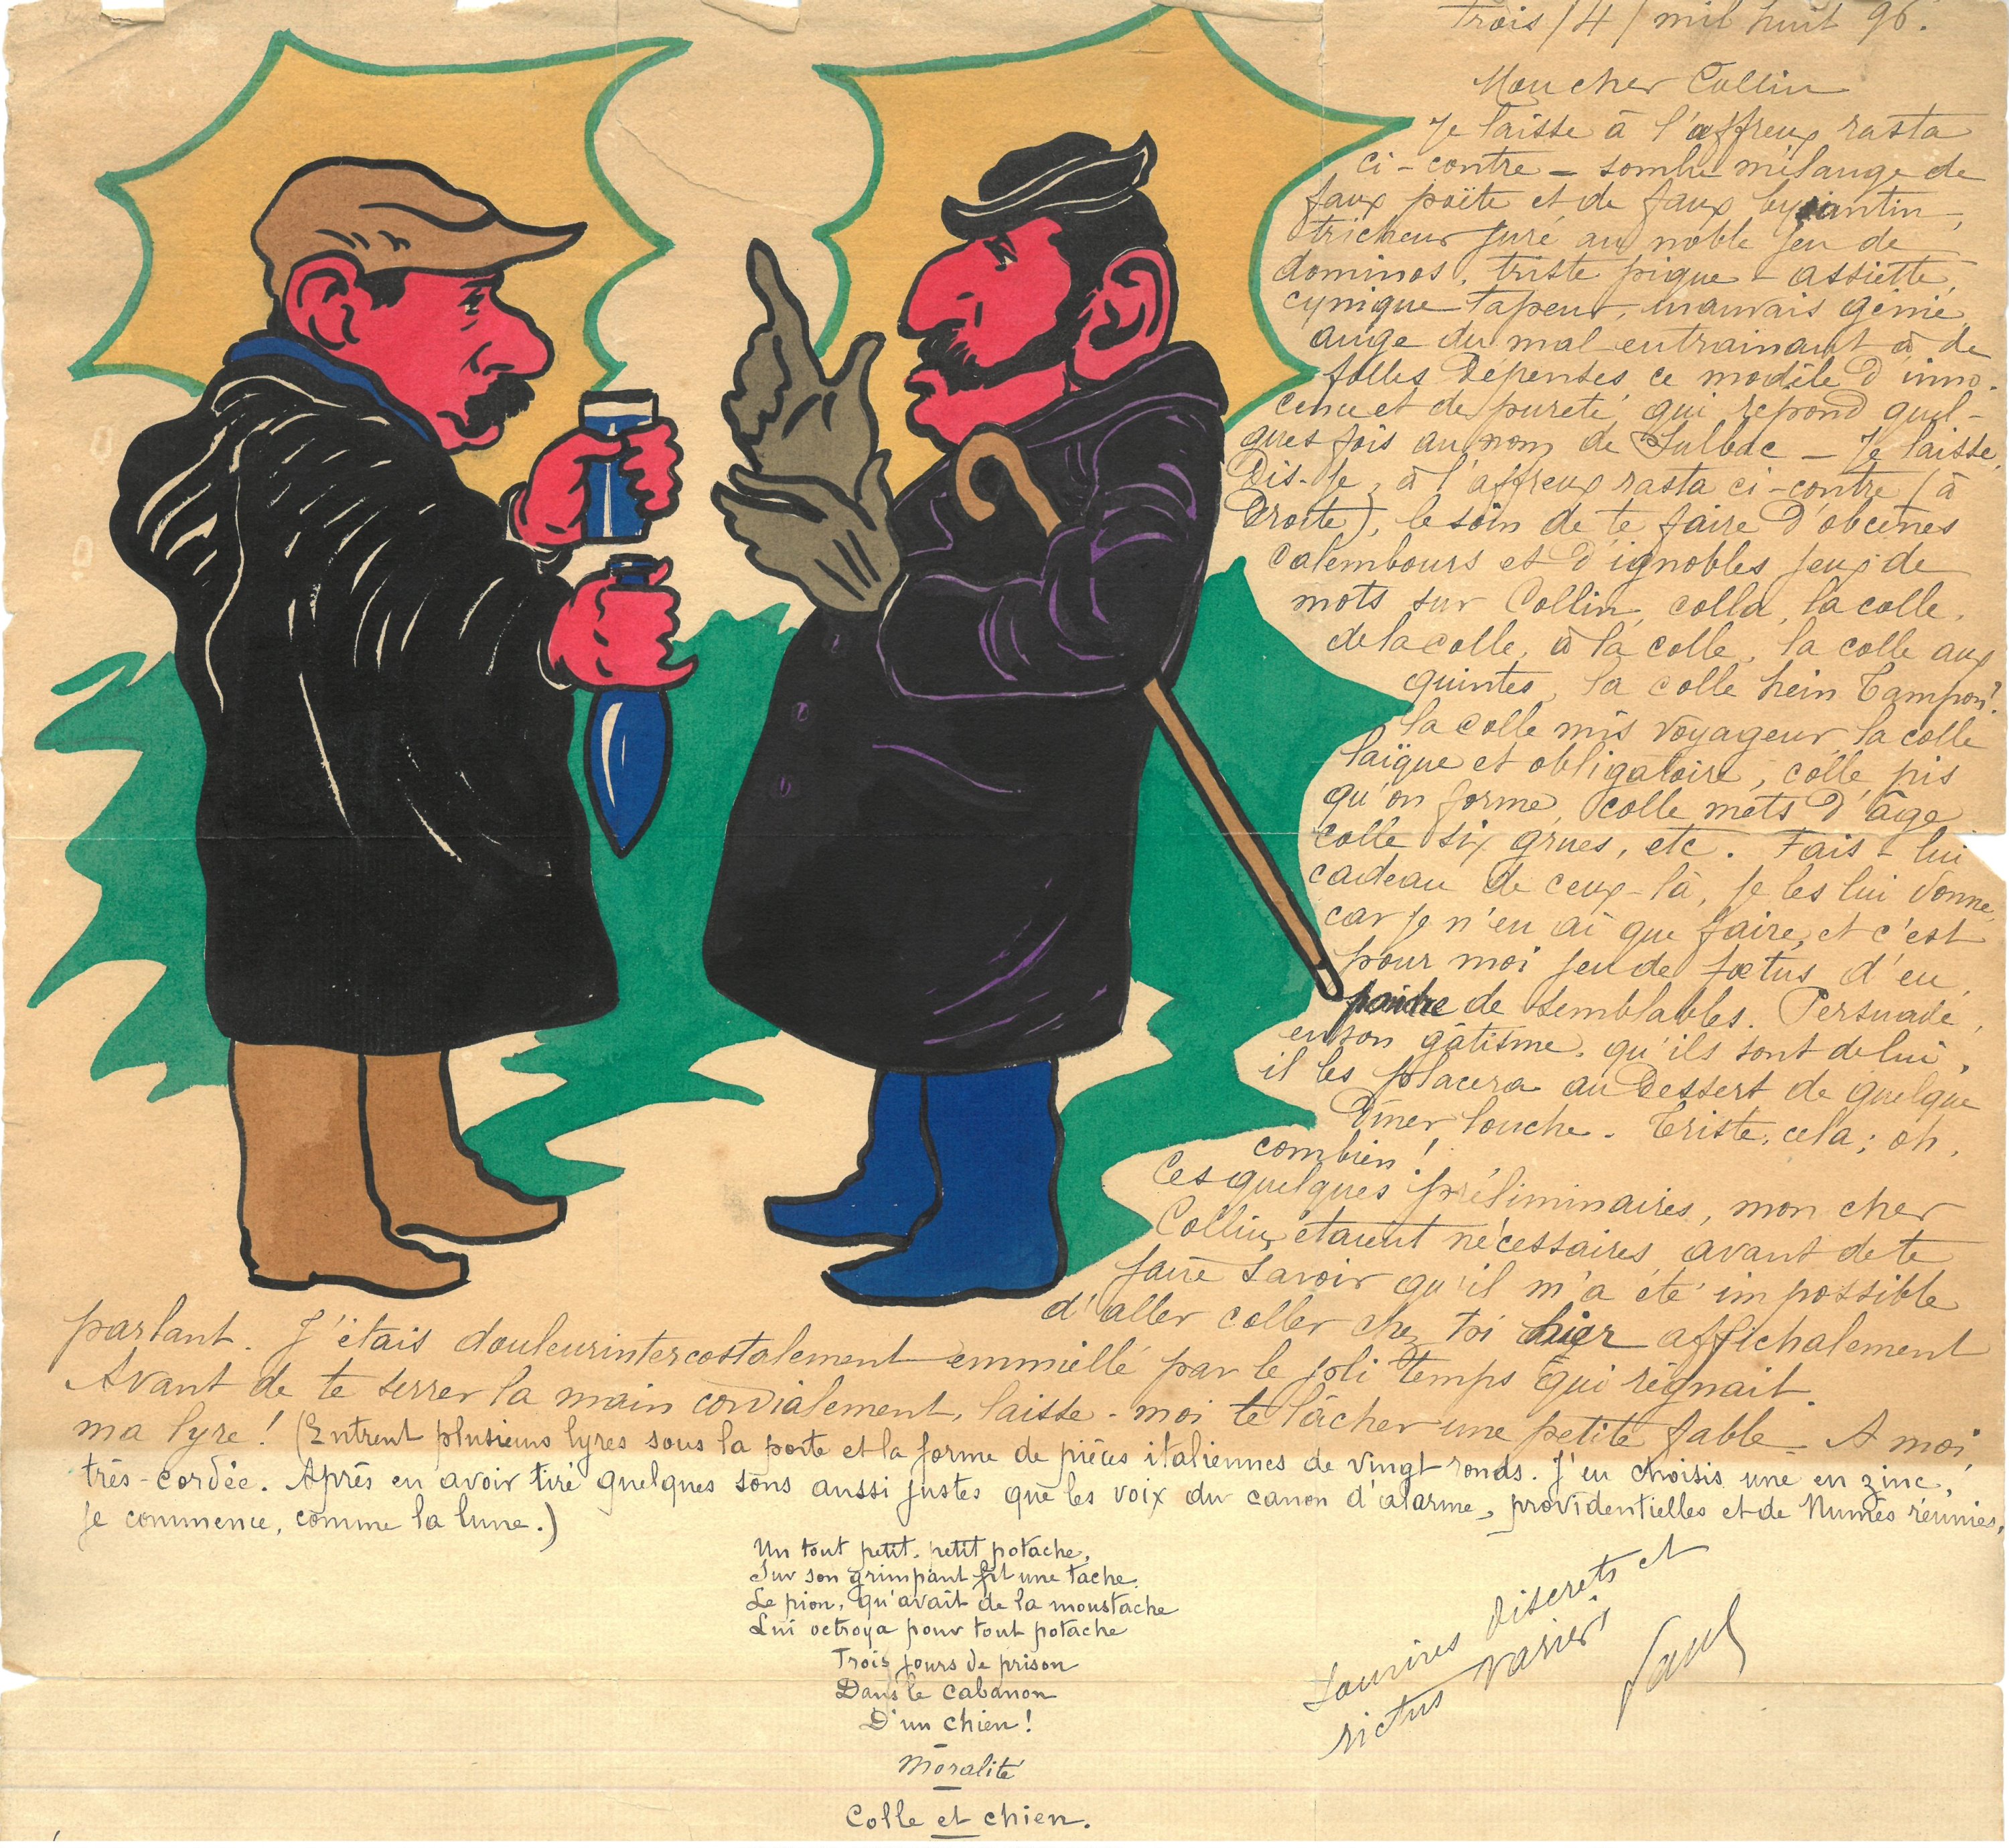 Trois / 4 / mil huit 96.
Mon cher Collin
Je laisse à l'affreux rasta
ci-contre – sombre mélange de
faux poëte et de faux bysantin,
tricheur juré au noble jeu de
dominos, triste pique-assiette,
cynique tapeur, mauvais génie
ange du mal entrainant à de
folles dépenses ce modèle d'inno-
cence et de pureté qui répond quel-
ques fois au nom de Sulbac – Je laisse,
dis-je, à l'affreux rasta ci-contre (à
Droite), le soin de te faire d'obcènes
calembours et d'ignobles jeux de
mots sur Collin, colla, la colle,
de la colle, à la colle, la colle aux
quintes, la colle hein Tampon?
la colle mis voyageur, la colle
laïque et obligatoire, colle pis
qu'on forme, colle mets d'âge
colle six grues, etc. Fais-lui
cadeau de ceux-là, je les lui donne,
car je n'en ai que faire, et c'est
pour moi jeu de fœtus d'en
faire de semblables. Persuadé,
en son gâtisme, qu'ils sont de lui,
il les placera au dessert de quelque
Dîner louche. Triste, cela; oh,
combien!
Ces quelques préliminaires, mon cher
Collin, étaient nécessaires avant de te
faire savoir qu'il m'a été impossible
d'aller coller chez toi hier affichalement
parlant. J'étais douleurintercostalement emmiellé par le joli temps qui régnait.
Avant de te serrer la main cordialement, laisse-moi te lâcher une petite fable – A moi,
ma lyre! (Entrent plusieurs lyres sous la porte et la forme de pièces italiennes de vingt ronds. J'en choisis une en zinc,
très-cordée. Après en avoir tiré quelques sons aussi justes que les voix du canon d'alarme, providentielles et de Numes réunies,
je commence, comme la lune.)
Un tout petit, petit potache,
Sur son grimpant fit une tache.
Le pion, qu'avait de la moustache
Lui octroya pour tout potache
Trois jours de prison
Dans le cabanon
D'un chien!
Moralité
Colle et chien.
Sourires discrets et
rictus variés